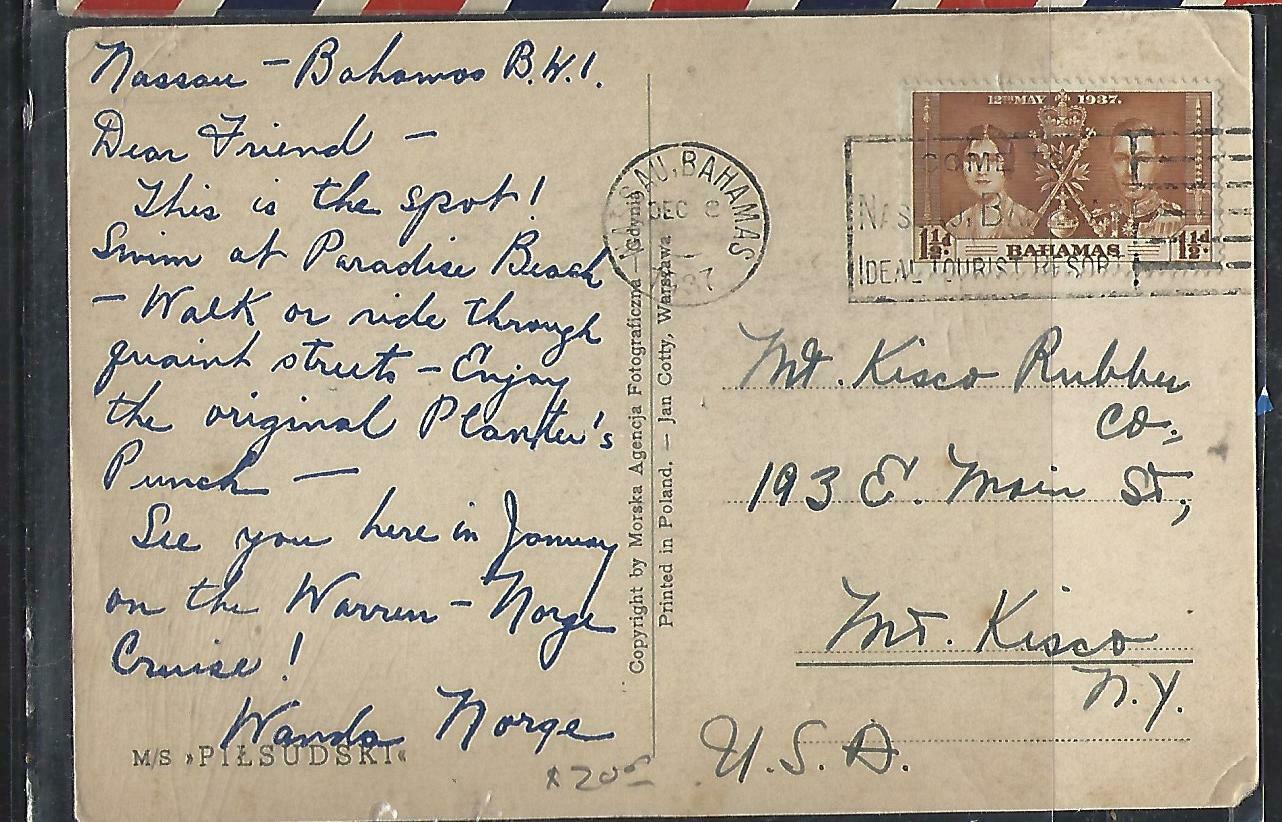 Nassau – Bahamas B.W.I.
Dear Friend –
This is the spot!
Swim at Paradise Beach
– Walk or ride through
quaint streets – Enjoy
the original Planter's
Punch –
See you here in January
on the Warren – Norge
Cruise!
Wanda Norge
M/S »PIŁSUDSKI«
Copyright by Morska Agencja Fotograficzna – Gdynia
Printed in Poland. – Jan Cotty, Warszawa
NASSAU, BAHAMAS
DEC 8
37
COME TO
NASSAU, BAHAMAS
IDEAL TOURIST RESORT
12TH MAY 1937.
1½d. BAHAMAS 1½d.
Mt. Kisco Rubber
Co.,
193 E. Main St.,
Mt. Kisco
N.Y.
U.S.A.